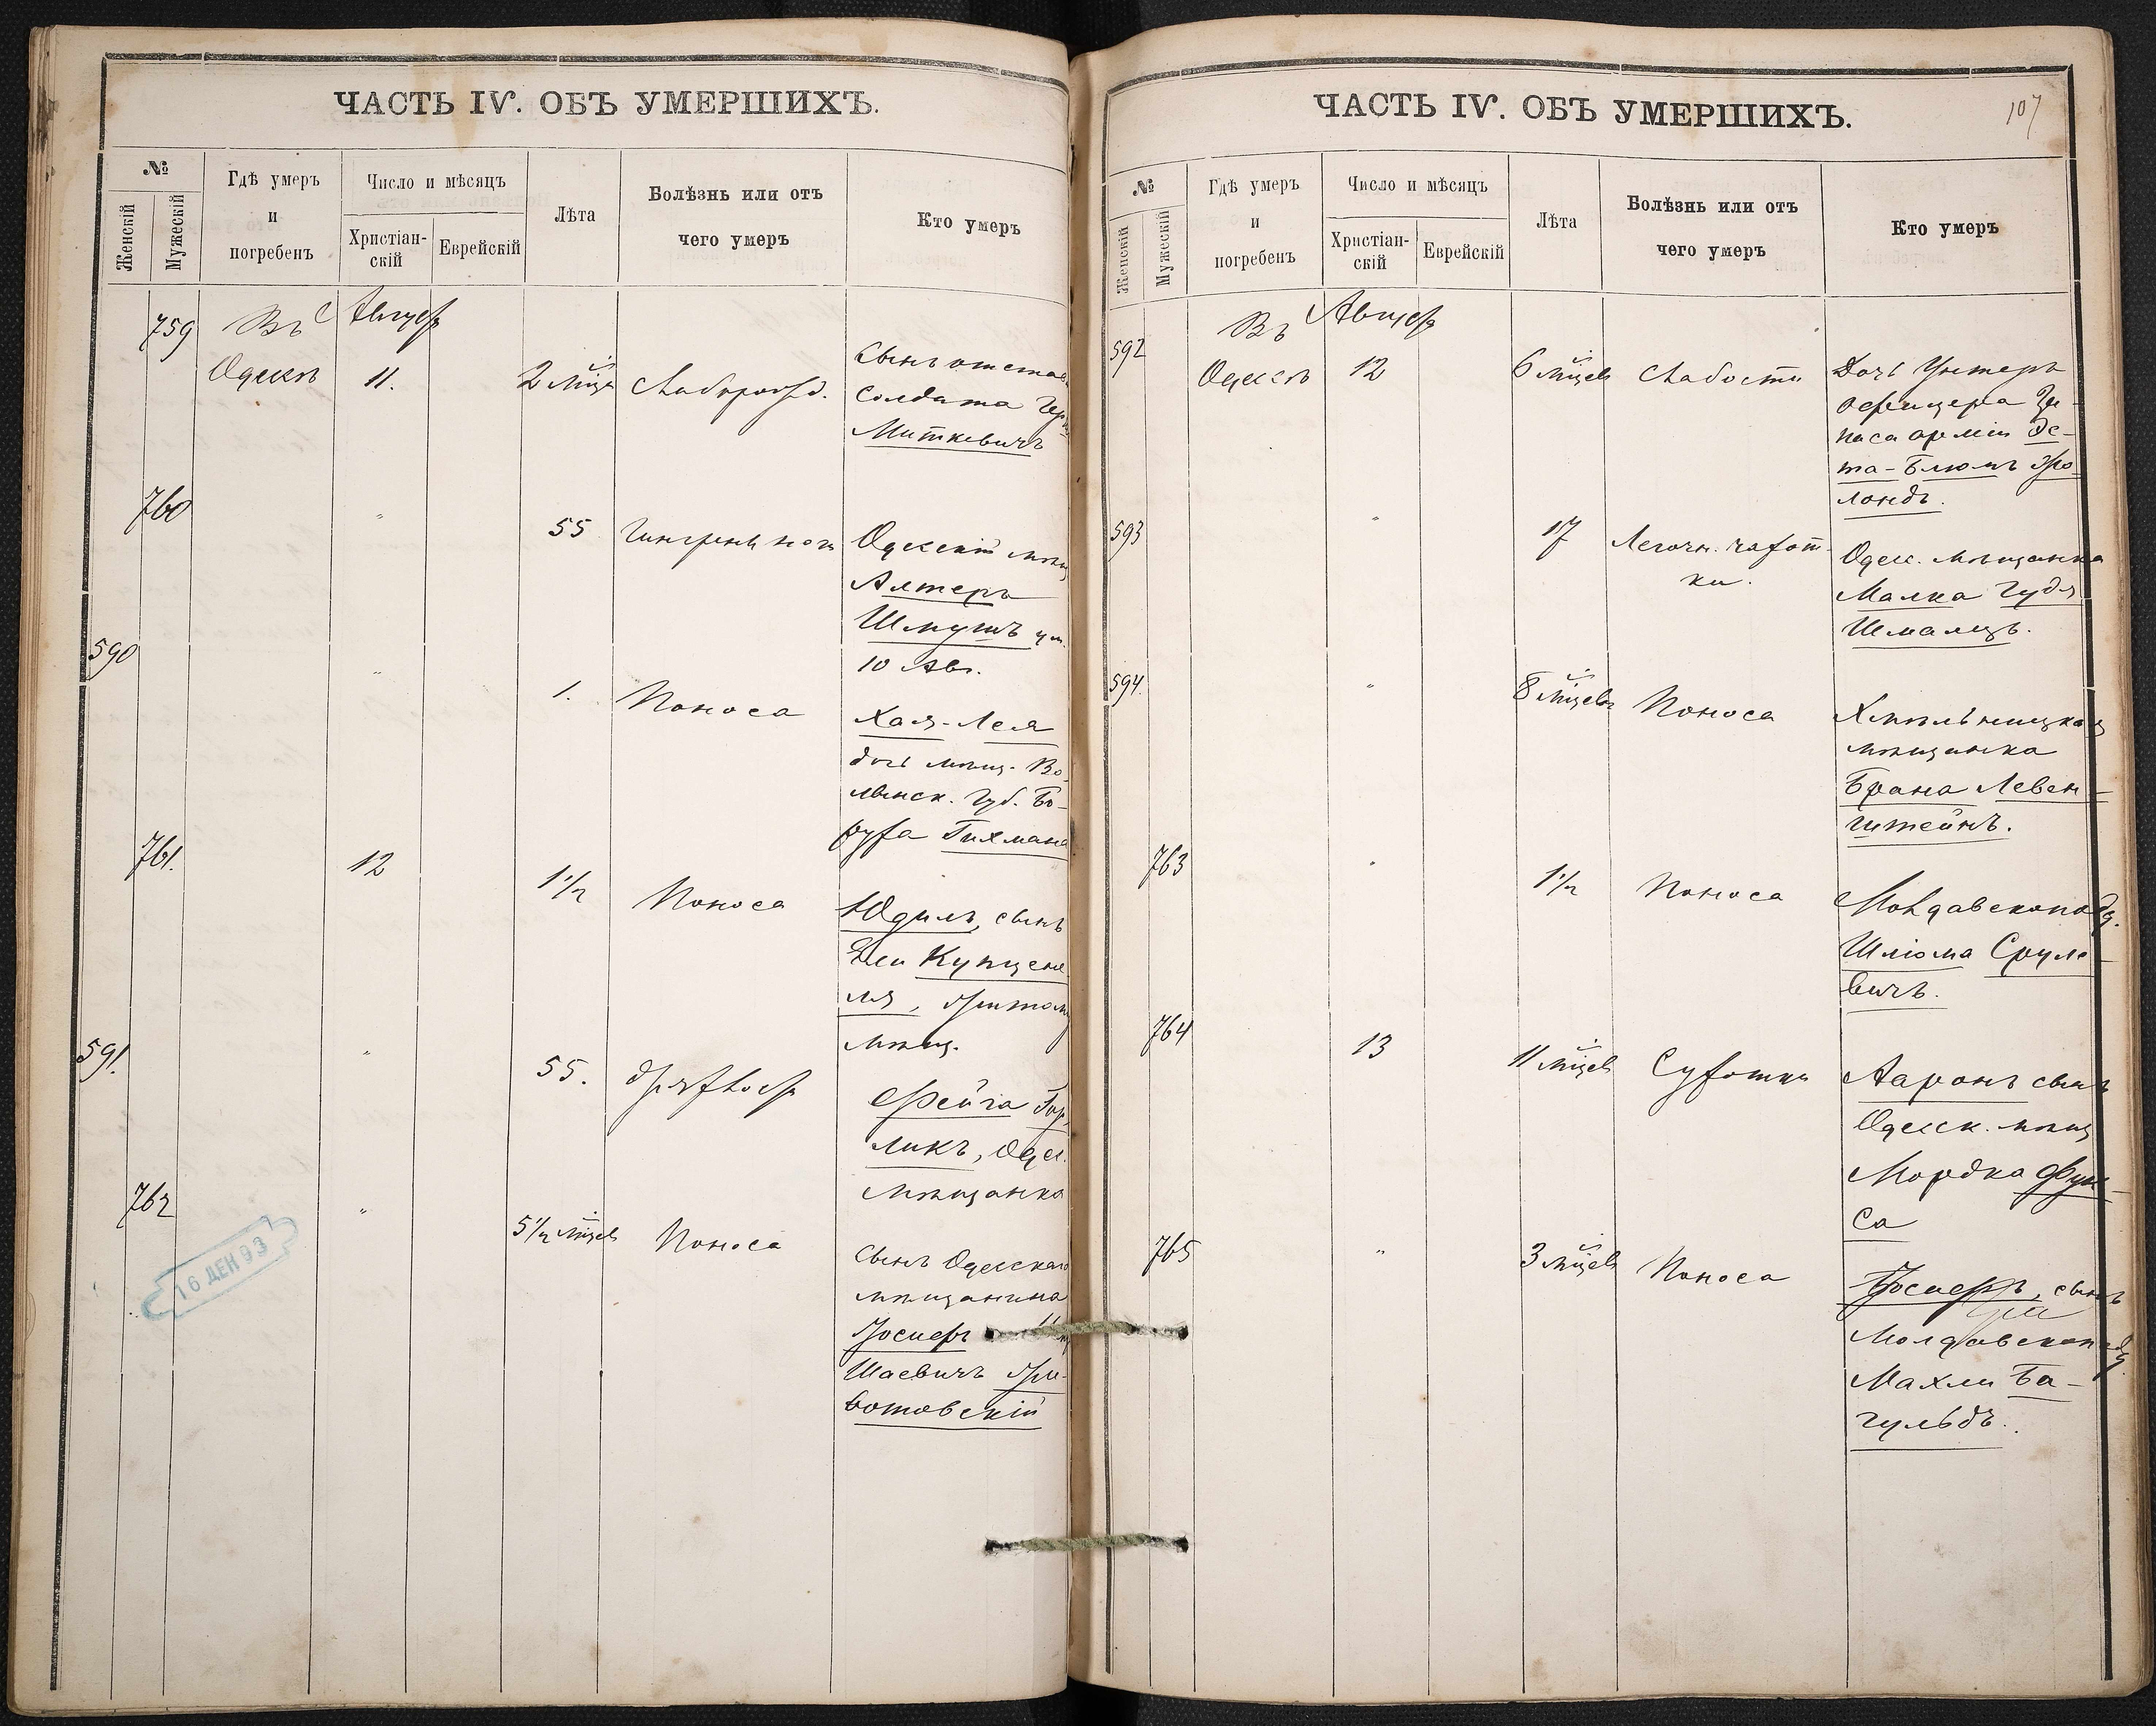 ЧАСТЬ IV. ОБЪ УМЕРШИХЪ.
№
Женскій
Мужескій
Гдѣ умеръ
и
погребенъ
Число и мѣсяцъ
Христіан-
скій
Еврейскій
Лѣта
Болѣзнь или отъ
чего умеръ
Кто умеръ
759
Въ
Одессѣ
Август
11.
2 мѣся
Слаборожд.
Сынъ отстав
Солдата
Миткевичъ
760
"
55
Гангрены ноги
Одесскій мѣщ
Алтеръ
Шмушъ ум.
10 Авг.
590
"
1.
Поноса
Хая-Лея
дочь мѣщ. Во-
лынск. Губ. Бо-
руха Гихмана
761.
12
1 1/2
Поноса
Юдиль, сынъ
Купцене
ля, Житом
мѣщ.
591.
"
55.
дряхлост
Фейга Гор
ликъ, Одес.
Мѣщанка
762
"
5 1/2 мѣсев
Поноса
Сынъ Одесскаго
мѣщанина
Іосифъ
Шаевичъ Жи-
вотовскій
16 ДЕН 93
ЧАСТЬ IV. ОБЪ УМЕРШИХЪ.
107
№
Женскій
Мужескій
Гдѣ умеръ
и
погребенъ
Число и мѣсяцъ
Христіан-
скій
Еврейскій
Лѣта
Болѣзнь или отъ
чего умеръ
Кто умеръ
592
Въ
Одессѣ
Август
12
6 мѣсев
Слабости
Дочь Унтеръ
офицера За-
паса арміи Эс-
та-Блюмъ Фро
лондъ.
593
"
17
Легочн. чахот-
ки.
Одес. мѣщанка
Малка Гудя
Шмалцъ.
594.
"
8 мѣсевъ
Поноса
Хмѣльницкая
мѣщанка
Брана Левен-
штейнъ.
763
"
1 1/2
Поноса
Молдавскоподд.
Шліома Сруле-
вичъ.
764
13
11 мѣсев
Сухотки
Ааронъ сынъ
Одесск. мѣщ
Мордка Фук-
са
765
"
3 мѣсев
Поноса
Іосифъ, сынъ
Молдавскопод
Махли Ба-
гульдъ.